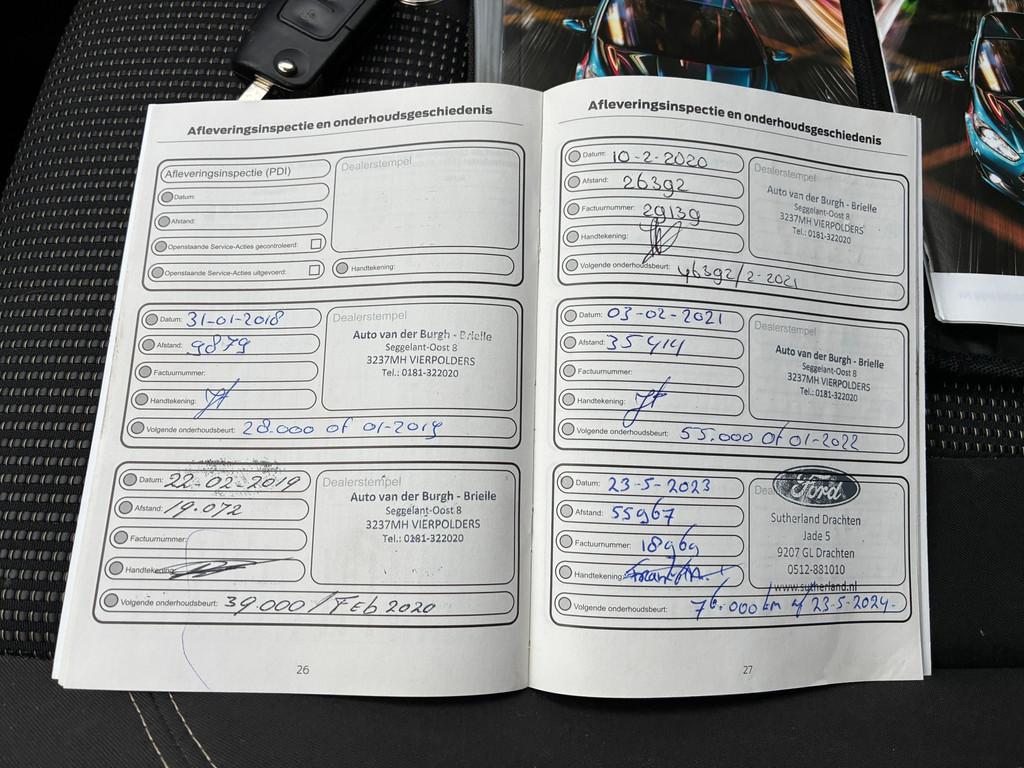 Afleveringsinspectie en onderhoudsgeschiedenis
Afleveringsinspectie (PDI)
Dealerstempel
Datum:
Afstand:
Openstaande Service-Acties gecontroleerd:
Openstaande Service-Acties uitgevoerd:
Handtekening:
Datum: 31-01-2018
Dealerstempel
Afstand: 9879
Auto van der Burgh - Brielle
Seggelant-Oost 8
3237MH VIERPOLDERS
Tel.: 0181-322020
Factuurnummer:
Handtekening:
Volgende onderhoudsbeurt: 28.000 of 01-2019
Datum: 22-02-2019
Dealerstempel
Afstand: 19.072
Auto van der Burgh - Brielle
Seggelant-Oost 8
3237MH VIERPOLDERS
Tel.: 0181-322020
Factuurnummer:
Handtekening:
Volgende onderhoudsbeurt: 39.000 / Feb 2020
26
Afleveringsinspectie en onderhoudsgeschiedenis
Datum: 10-2-2020
Dealerstempel
Afstand: 26392
Auto van der Burgh - Brielle
Seggelant-Oost 8
3237MH VIERPOLDERS
Tel.: 0181-322020
Factuurnummer: 29139
Handtekening:
Volgende onderhoudsbeurt: 46392/2-2021
Datum: 03-02-2021
Dealerstempel
Afstand: 35414
Auto van der Burgh - Brielle
Seggelant-Oost 8
3237MH VIERPOLDERS
Tel.: 0181-322020
Factuurnummer:
Handtekening:
Volgende onderhoudsbeurt: 55.000 of 01-2022
Datum: 23-5-2023
Ford
Afstand: 55967
Sutherland Drachten
Jade 5
9207 GL Drachten
0512-881010
www.sutherland.nl
Factuurnummer: 18969
Handtekening:
Volgende onderhoudsbeurt: 76.000 km of 23-5-2024.
27